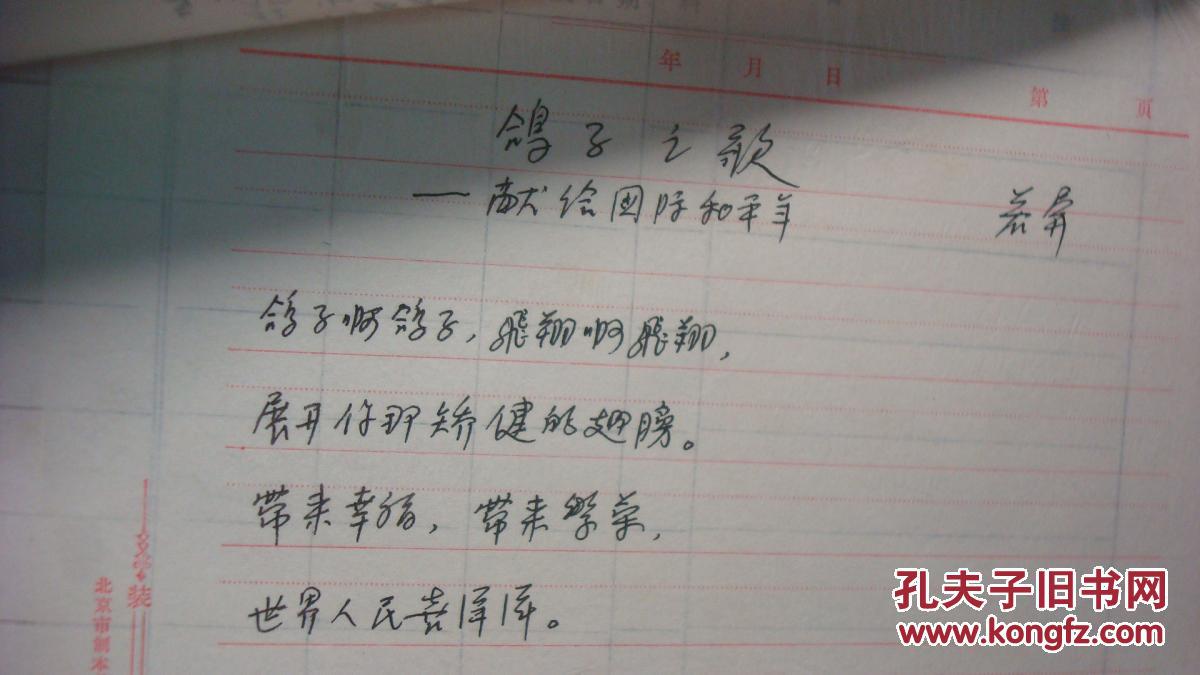 年 月 日
第 页
鸽子之歌
——献给国际和平年
若
鸽子啊鸽子,飛翔啊飛翔,
展开你那矫健的翅膀。
带来幸福,带来繁荣,
世界人民喜洋洋。
装
北京市制本
孔夫子旧书网
www.kongfz.com